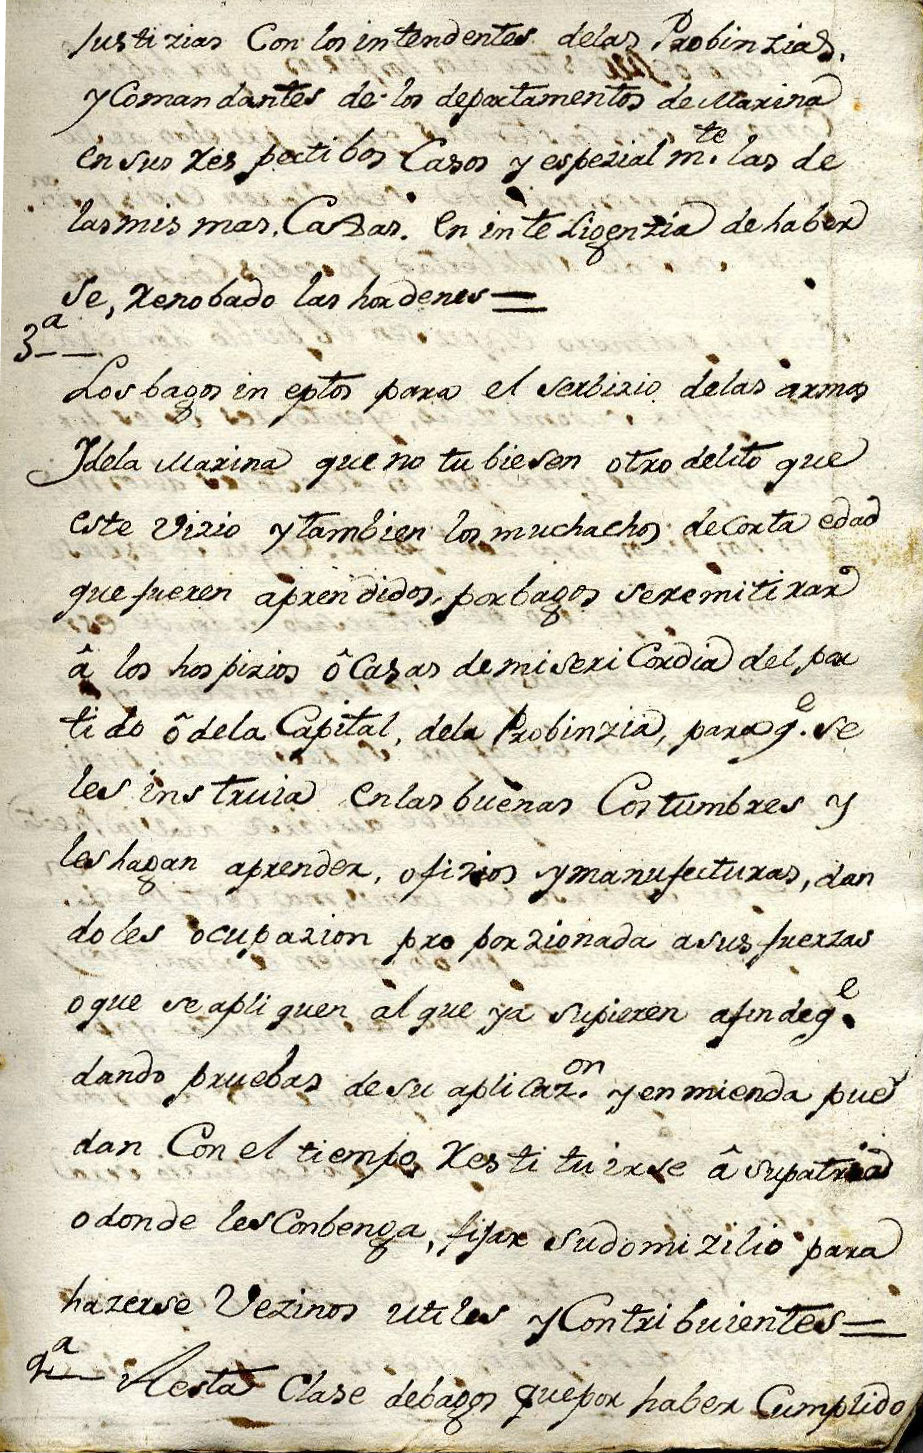 Justizias Con los intendentes delas Probinzias,
y Comandantes de los departamentos de Marina
en sus respectibos Casos y espezialm.te las de
las mismas, Cazas. en inteligenzia de haber
se, renobado las hordenes =
3.a
Los bagos ineptos para el serbizio delas armas
Y dela Marina que no tubiesen otro delito que
este Vizio y tambien los muchachos de corta edad
que fueren aprendidos, por bagos se remitiran
â los hospizios ô Casas de miseri Cordia del, par
tido ô dela Capital, dela Probinzia, para q.e se
les instruia en las buenas Costumbres y
les hagan aprender, ofizios y manufacturas, dan
doles ocupazion proporzionada a sus fuerzas
o que se apliquen al que ya supieren a fin de q.e
dando pruebas de su aplicaz.on y enmienda pue
dan Con el tiempo restituirse â su patria
o donde les Conbenga, fijar su domizilio para
hazerse Vezinos utiles y Contribuientes =
4.a
A esta Clase de bagos que por haber Cumplido